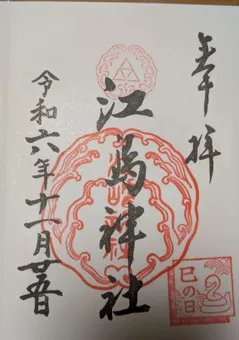 奉拝
江島神社
令和六年十一月廿五日
巳の日